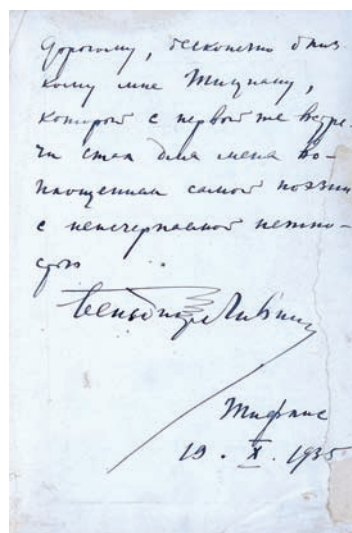 Дорогому, бесконечно близ-
кому мне Тициану,
который с первой же встре-
чи стал для меня во-
площением самой поэзии
с неисчерпаемой нежно-
стью
Бенедикт Лившиц
Тифлис
19 . X . 1935